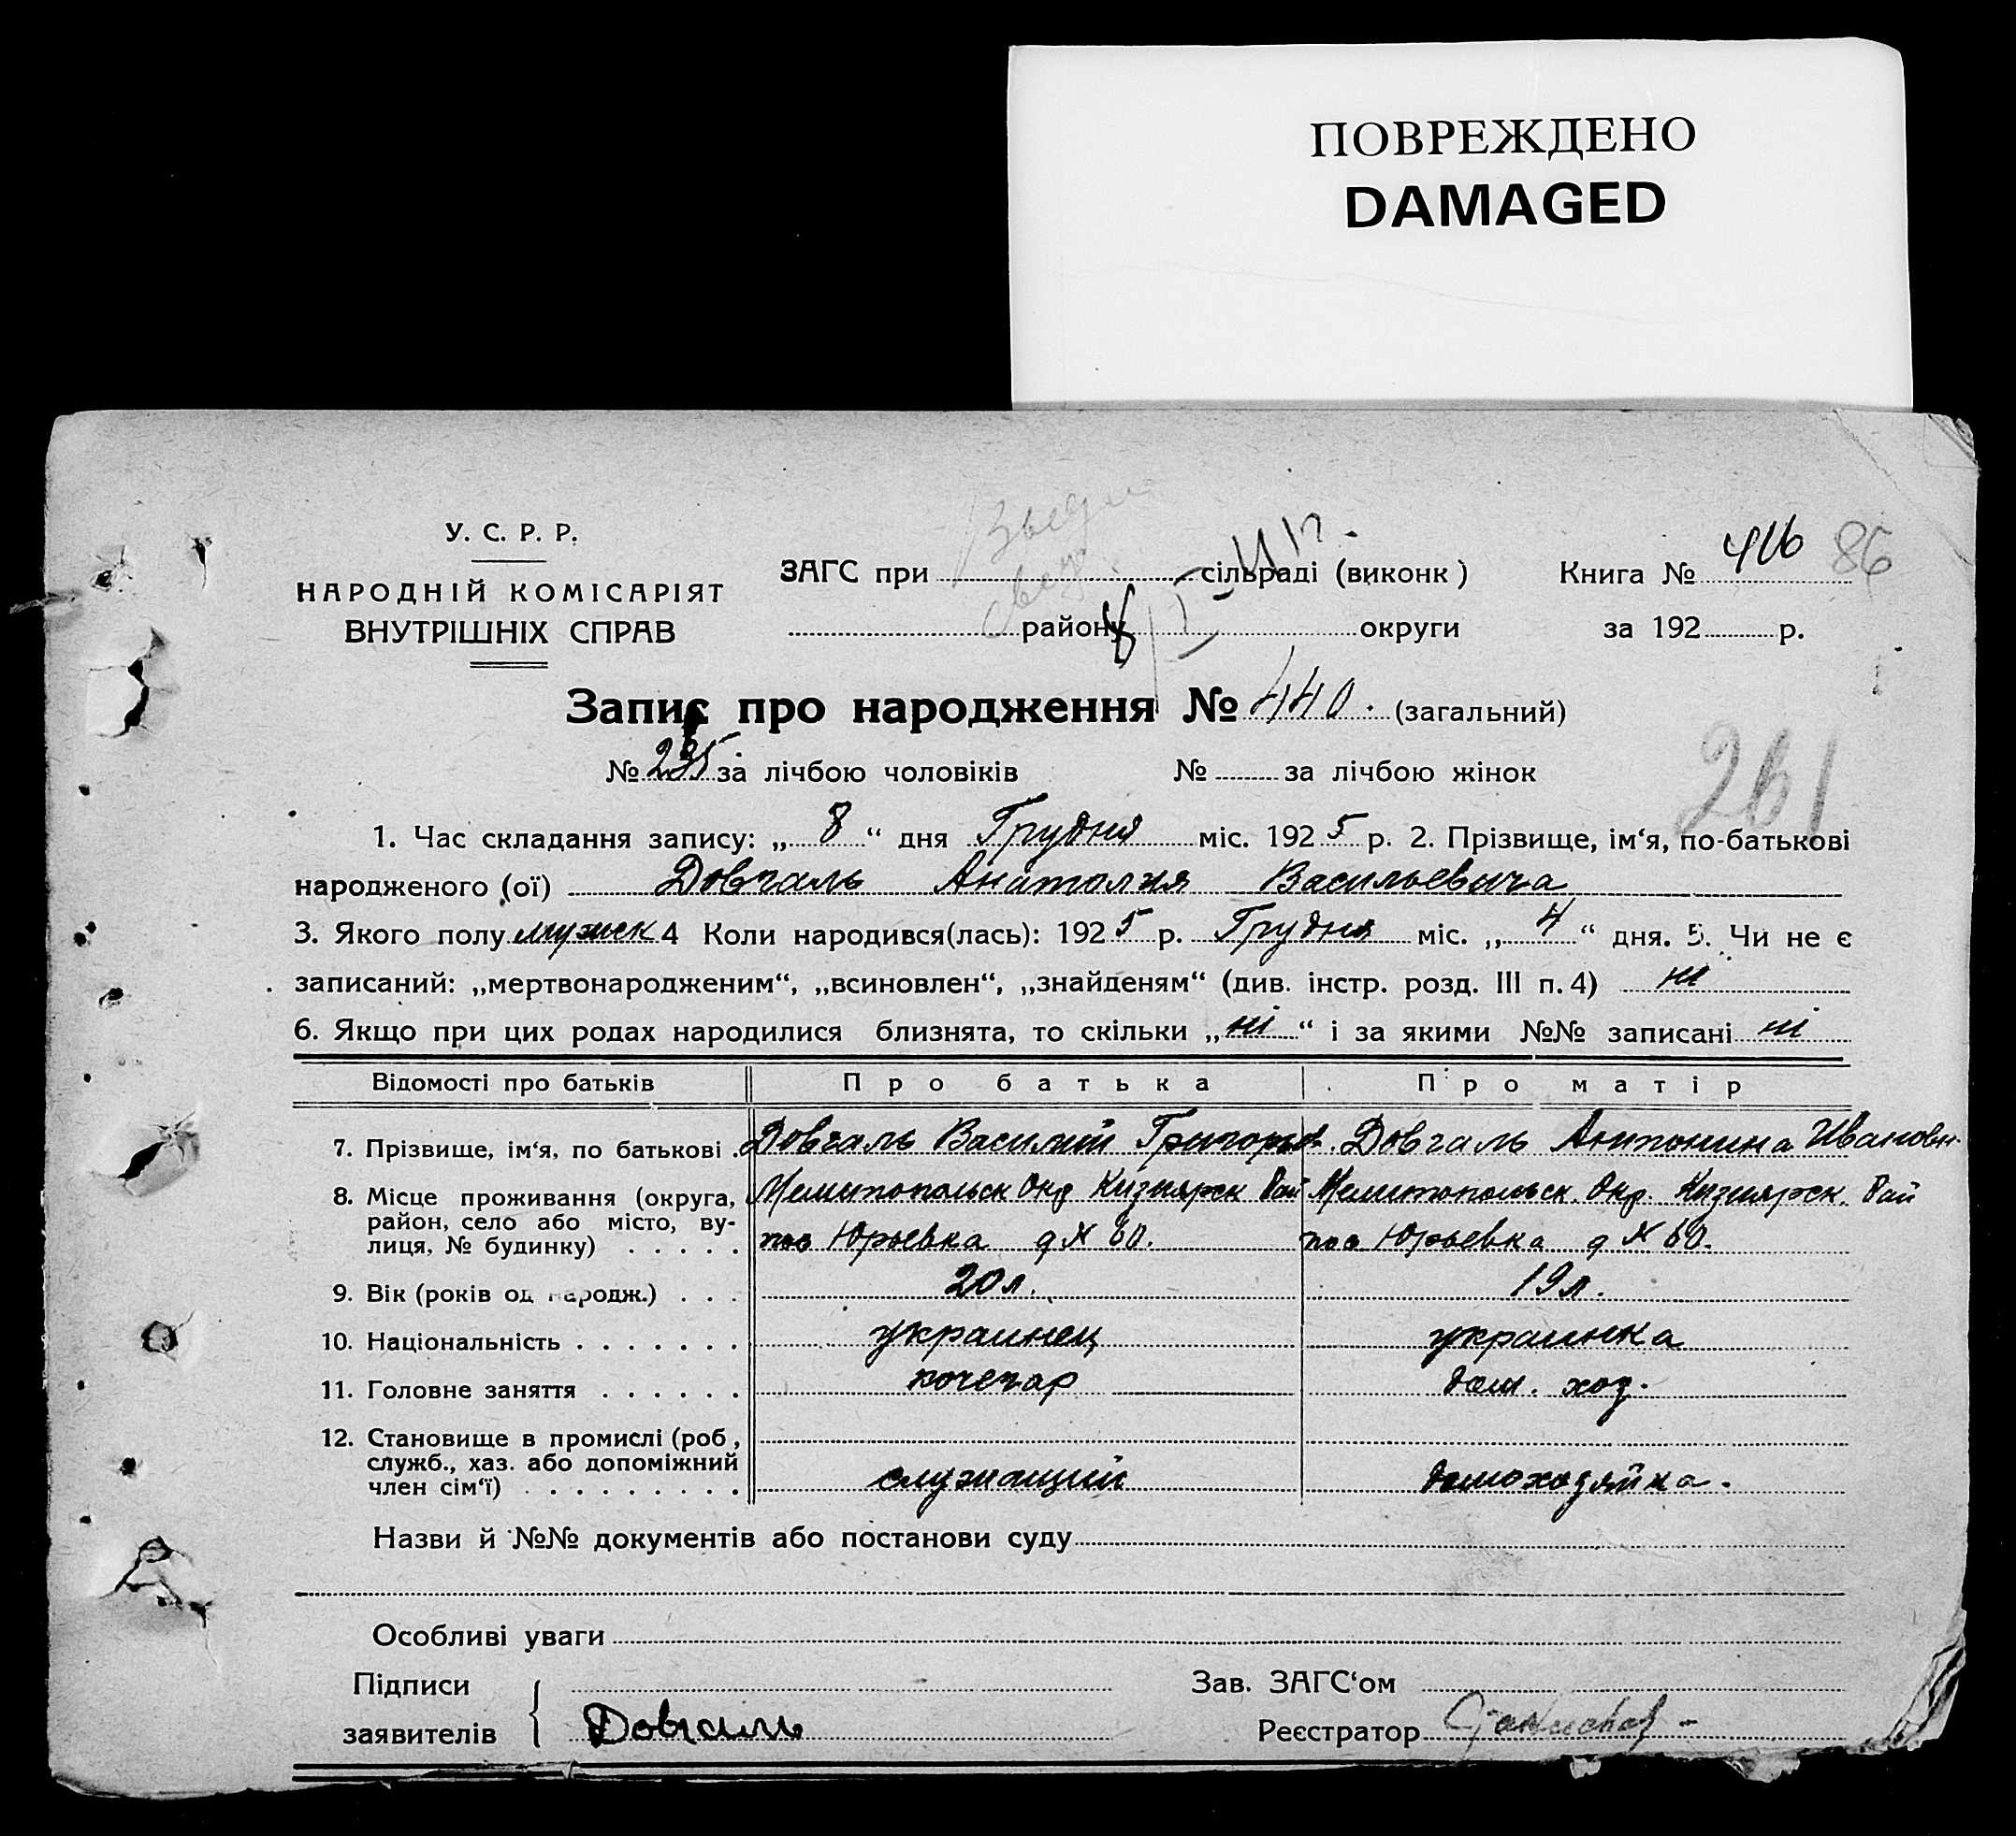 ПОВРЕЖДЕНО
DAMAGED
У. С. Р. Р.
НАРОДНІЙ КОМІСАРІЯТ
ВНУТРІШНІХ СПРАВ
ЗАГС при сільраді (виконк)
району округи
Книга № 416 86
за 192 р.
Запис про народження № 440. (загальний)
№ за лічбою чоловіків № за лічбою жінок
261
1. Час складання запису: „ 8 “ дня Грудня міс. 192 5 р. 2. Прізвище, ім‘я, по-батькові
народженого (ої) Довгаль Анатолия Васильевича
3. Якого полу мужск 4 Коли народився(лась): 192 5 р. Грудня міс. „ 4 “ дня. 5. Чи не є
записаний: „мертвонародженим“, „всиновлен“, „знайденям“ (див. інстр. розд. III п. 4) ні
6. Якщо при цих родах народилися близнята, то скільки „ ні “ і за якими №№ записані ні
Відомості про батьків Про батька Про матір
7. Прізвище, ім‘я, по батькові . Довгаль Василий Григорьев. Довгаль Антонина Ивановн.
8. Місце проживання (округа, Мелитопольск Окр Кизиярск Рай Мелитопольск. Окр. Кизиярск. Рай
район, село або місто, ву-
лиця, № будинку) . . . . . пос Юрьевка д № 60. пос Юрьевка д № 60.
9. Вік (років од народж.) . . . 20 л. 19 л.
10. Національність . . . . . . . украинец украинка
11. Головне заняття . . . . . . кочегар дом. хоз.
12. Становище в промислі (роб,
служб., хаз. або допоміжний
член сім‘ї) . . . . . . . . . служащий домохозяйка.
Назви й №№ документів або постанови суду
Особливі уваги
Підписи Зав. ЗАГС‘ом
заявителів Довгаль Реєстратор